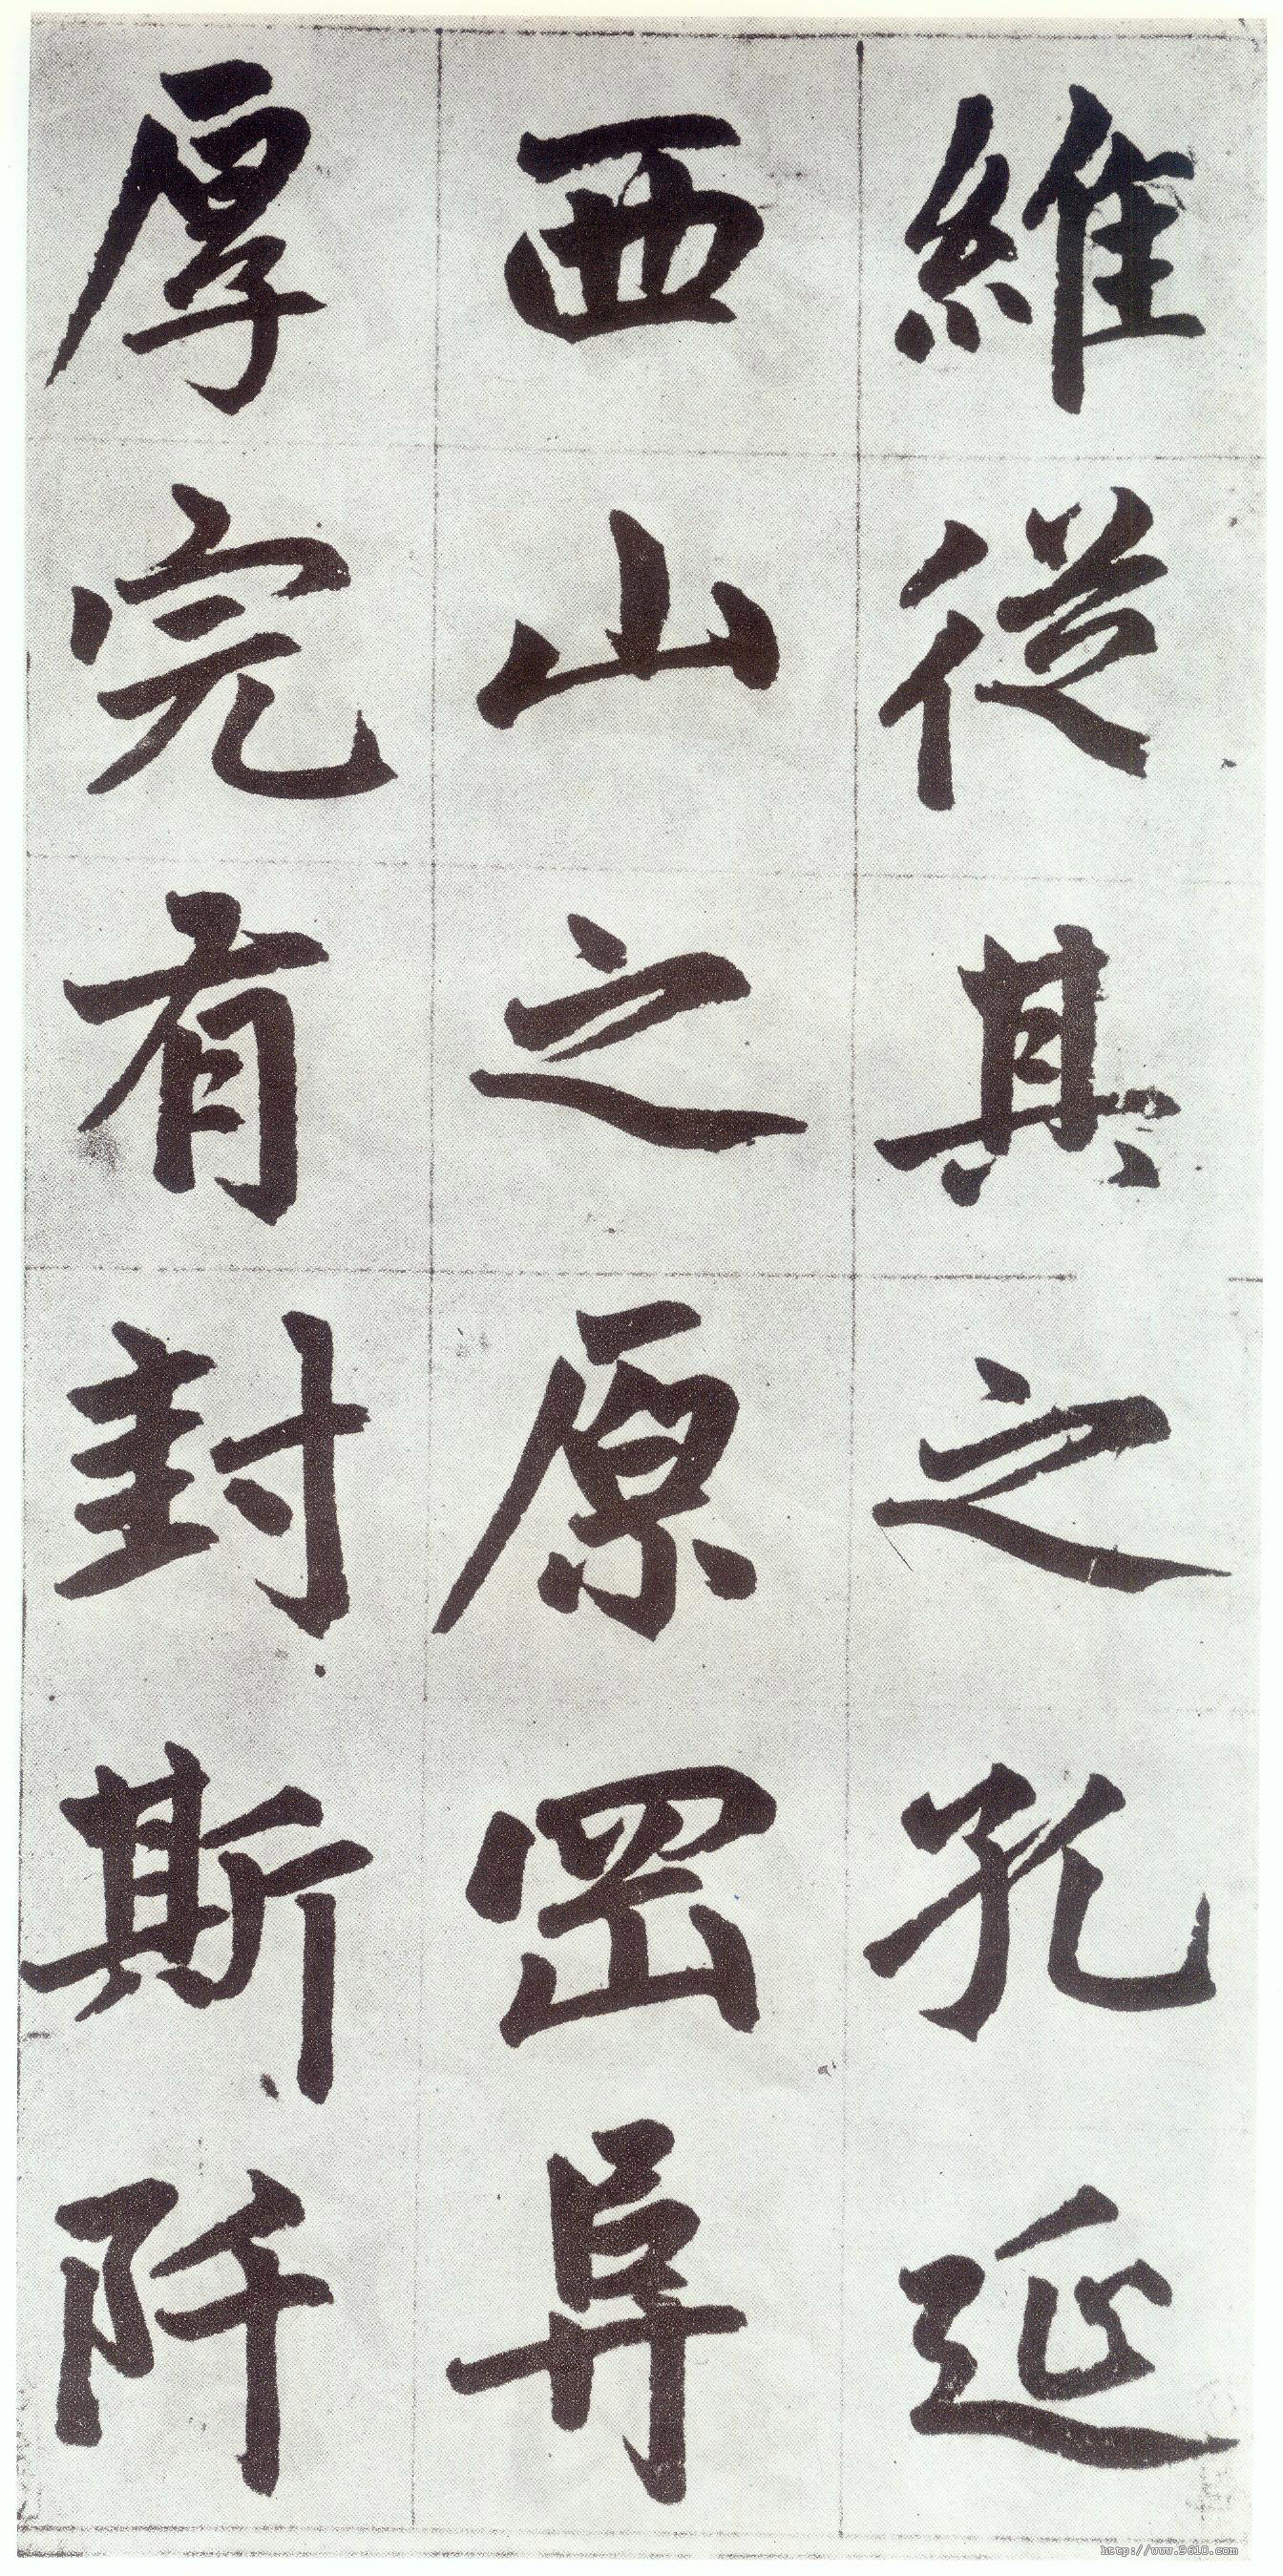 維從其之孔延
西山之原罡阜
厚完有封斯阡
http://www.9610.com